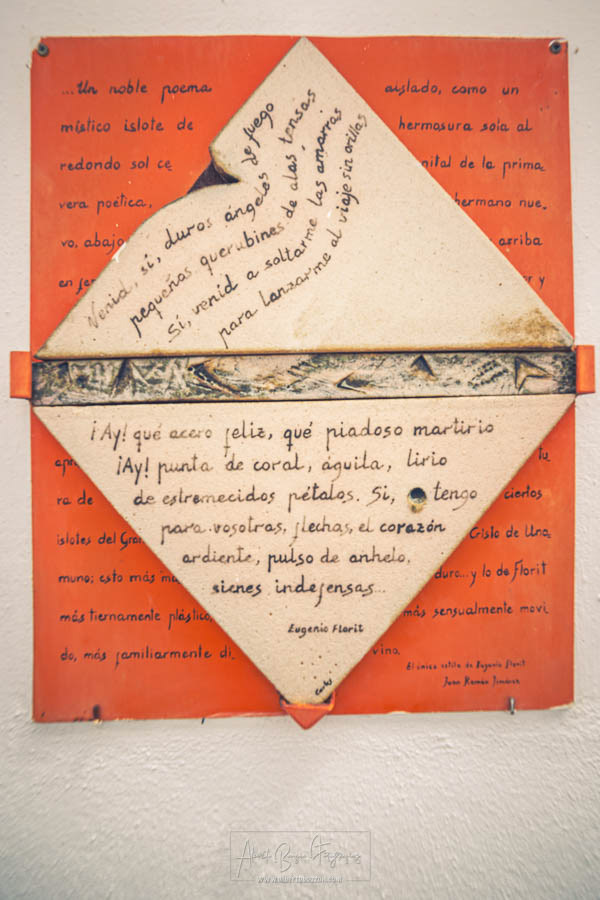 ...Un noble poema aislado, como un
místico islote de hermosura sola al
redondo sol ce nital de la prima-
vera poética, hermano nue-
vo, abajo arriba
en y
Venid, sí, duros ángeles de fuego
pequeños querubines de alas tensas
Sí, venid a soltarme las amarras
para lanzarme al viaje sin orillas
¡Ay! qué acero feliz, qué piadoso martirio
¡Ay! punta de coral, águila, lirio
de estremecidos pétalos. Si, tengo
para vosotras, flechas, el corazón
ardiente, pulso de anhelo,
sienes indefensas...
Eugenio Florit
tu
ra de ciertos
islotes del Cristo de Una-
muno; esto más duro... y lo de Florit
más tiernamente plástico, más sensualmente movi
do, más familiarmente di vino.
El único estilo de Eugenio Florit
Juan Ramón Jiménez